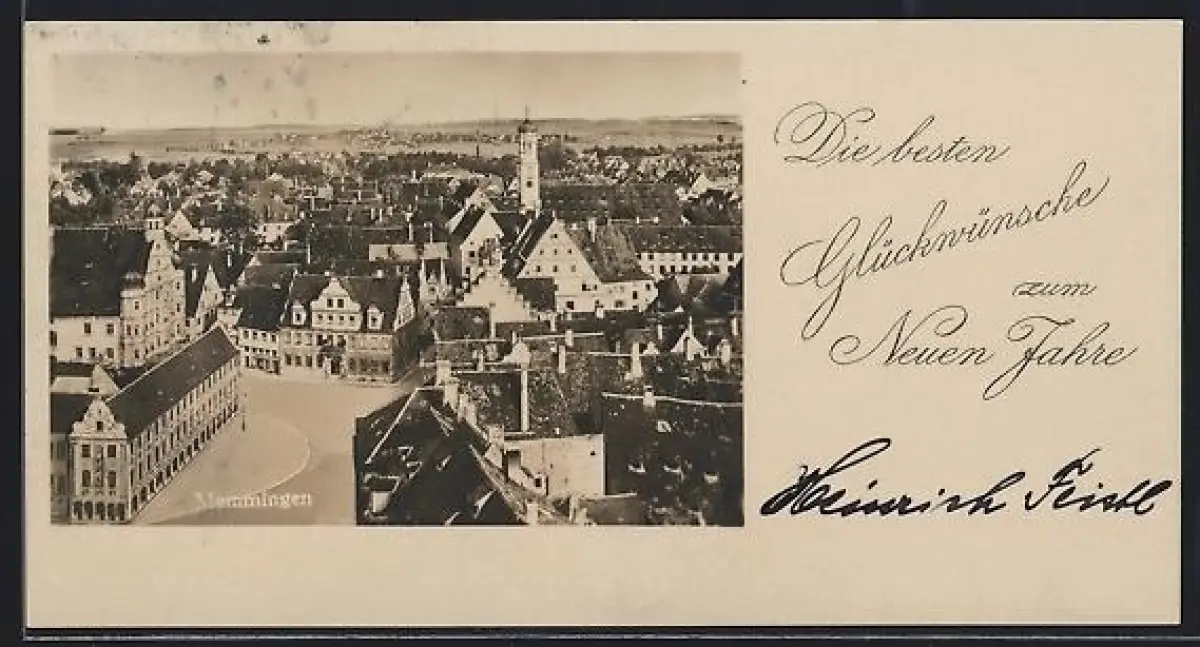 Memmingen
Die besten
Glückwünsche
zum
Neuen Jahre
Heinrich Feistl